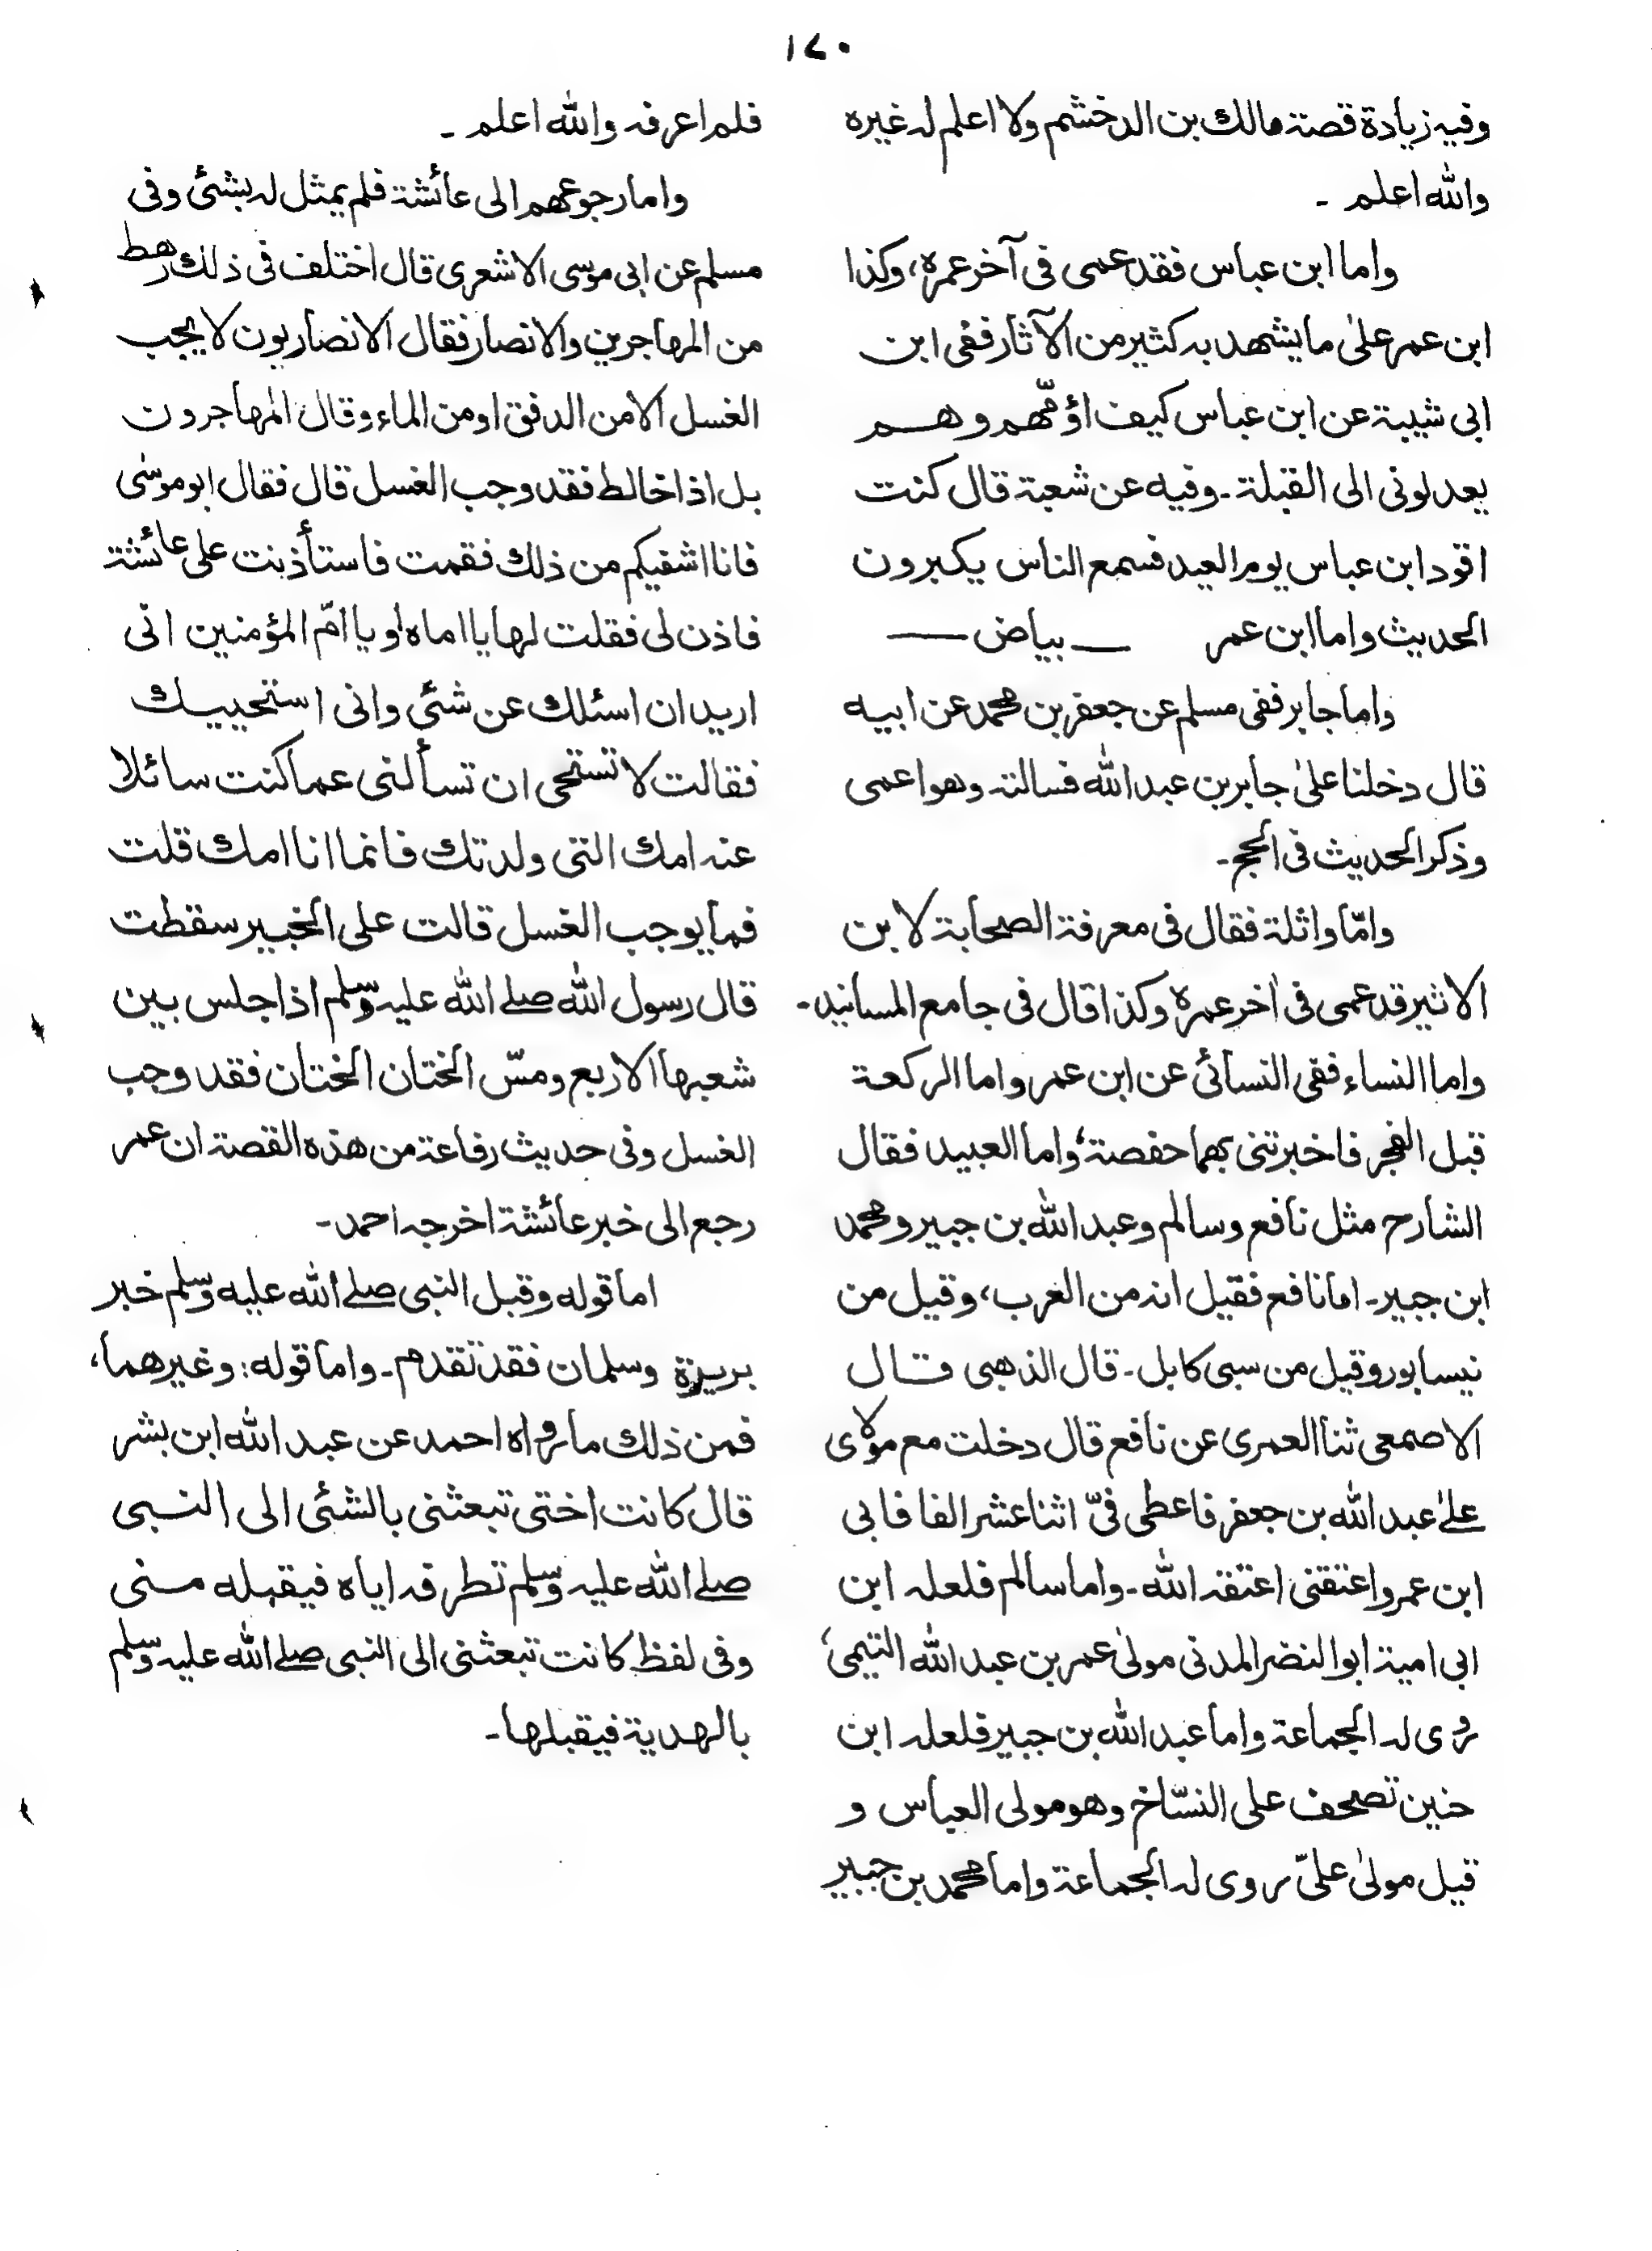 ١٧٠
وفيه زيادة قصة مالك بن الدخشم ولا اعلم له غيره
والله اعلم ـ
واما ابن عباس فقد عمى فى آخر عمره، وكذا
ابن عمر علىٰ ما يشهد به كثير من الآثار ففى ابن
ابى شيبة عن ابن عباس كيف اؤمّهم وهم
يعدلونى الى القبلة ـ وفيه عن شعبة قال كنت
اقود ابن عباس يوم العيد فسمع الناس يكبرون
الحديث واما ابن عمر ــ بياض ــ
واما جابر ففى مسلم عن جعفر بن محمد عن ابيه
قال دخلنا علىٰ جابر بن عبد الله فسالته وهو اعمى
وذكر الحديث فى الحج ـ
وامّا واثلة فقال فى معرفة الصحابة لابن
الاثير قد عمى فى اٰخر عمره وكذا قال فى جامع المسانيد ـ
واما النساء ففى النسائى عن ابن عمر واما الركعة
قبل الفجر فاخبرتنى بهما حفصة، واما العبيد فقال
الشارح مثل نافع وسالم وعبد الله بن جبير ومحمد
ابن جبير ـ اما نافع فقيل انه من العرب، وقيل من
نيسابور وقيل من سبى كابل ـ قال الذهبى قال
الاصمعى ثنا العمرى عن نافع قال دخلت مع مولاى
علىٰ عبد الله بن جعفر فاعطى فىّ اثنا عشر الفا فابى
ابن عمر واعتقنى اعتقه الله ـ واما سالم فلعله ابن
ابى امية ابو النضر المدنى مولىٰ عمر بن عبد الله التيمى،
روى له الجماعة واما عبد الله بن جبير فلعله ابن
حنين تصحف على النسّاخ وهو مولى العباس و
قيل مولىٰ علىّ روى له الجماعة واما محمد بن جبير
فلم اعرفه والله اعلم ـ
واما رجوعهم الى عائشة فلم يمثل له بشئ وفى
مسلم عن ابى موسى الاشعرى قال اختلف فى ذلك رهط
من المهاجرين والانصار فقال الانصاريون لا يجب
الغسل الا من الدفق او من الماء وقال المهاجرون
بل اذا خالط فقد وجب الغسل قال فقال ابو موسٰى
فانا اشفيكم من ذلك فقمت فاستأذنت على عائشة
فاذن لى فقلت لها يا اماه او يا امّ المؤمنين انى
اريد ان اسئلك عن شئى وانى استحييك
فقالت لا تستحى ان تسألنى عما كنت سائلا
عنه امك التى ولدتك فانما انا امك قلت
فما يوجب الغسل قالت على الخبير سقطت
قال رسول الله صلے الله عليه وسلم اذا جلس بين
شعبها الاربع ومسّ الختان الختان فقد وجب
الغسل وفى حديث رفاعة من هذه القصة ان عمر
رجع الى خبر عائشة اخرجه احمد ـ
اما قوله وقبل النبى صلے الله عليه وسلم خبر
بريرة وسلمان فقد تقدم ـ واما قوله: وغيرهما،
فمن ذلك ما رواه احمد عن عبد الله ابن بشر
قال كانت اختى تبعثنى بالشئى الى النبى
صلے الله عليه وسلم تطرفه اياه فيقبله منى
وفى لفظ كانت تبعثنى الى النبى صلے الله عليه وسلم
بالهدية فيقبلها ـ